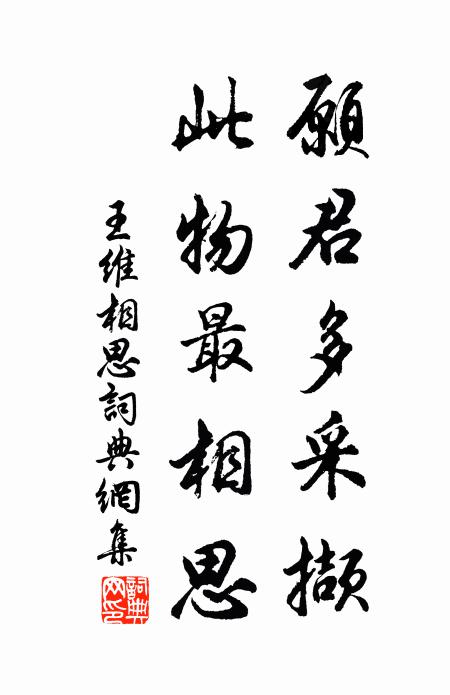 願君多采擷
此物最相思
王維相思詞典網集
詞典網印